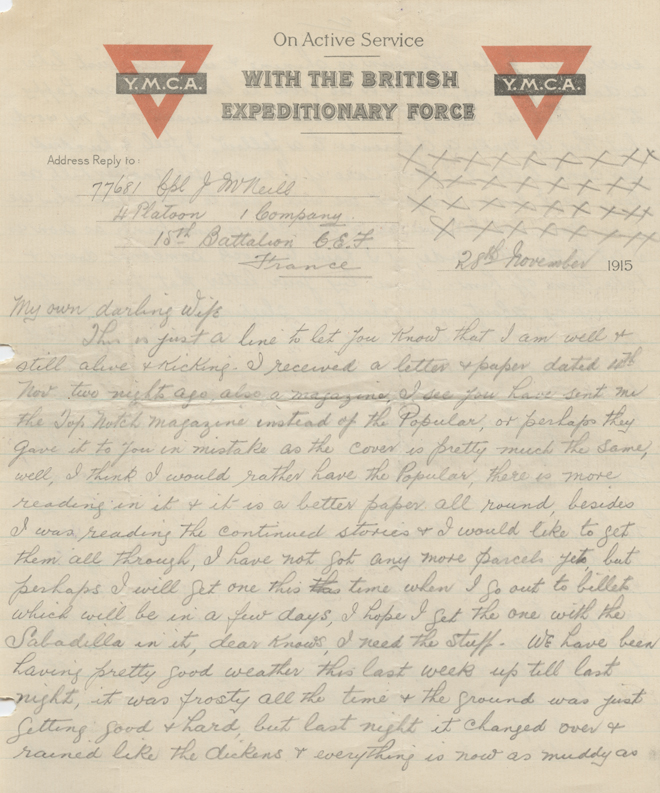 On Active Service
Y.M.C.A. WITH THE BRITISH Y.M.C.A.
EXPEDITIONARY FORCE
Address Reply to:
77681 Cpl J McNeill
4 Platoon 1 Company
15th Battalion C.E.F.
France
28th November 1915
My own darling Wife
This is just a line to let you know that I am well &
still alive & kicking. I received a letter & paper dated 10th
Nov two nights ago also a magazine, I see you have sent me
the Top Notch magazine instead of the Popular, or perhaps they
gave it to you in mistake as the cover is pretty much the same,
well, I think I would rather have the Popular, there is more
reading in it & it is a better paper all round, besides
I was reading the continued stories & I would like to get
them all through, I have not got any more parcels yet, but
perhaps I will get one this time when I go out to billets
which will be in a few days, I hope I get the one with the
Sabadilla in it, dear knows, I need the stuff. We have been
having pretty good weather this last week up till last
night, it was frosty all the time & the ground was just
getting good & hard, but last night it changed over &
rained like the dickens & everything is now as muddy as